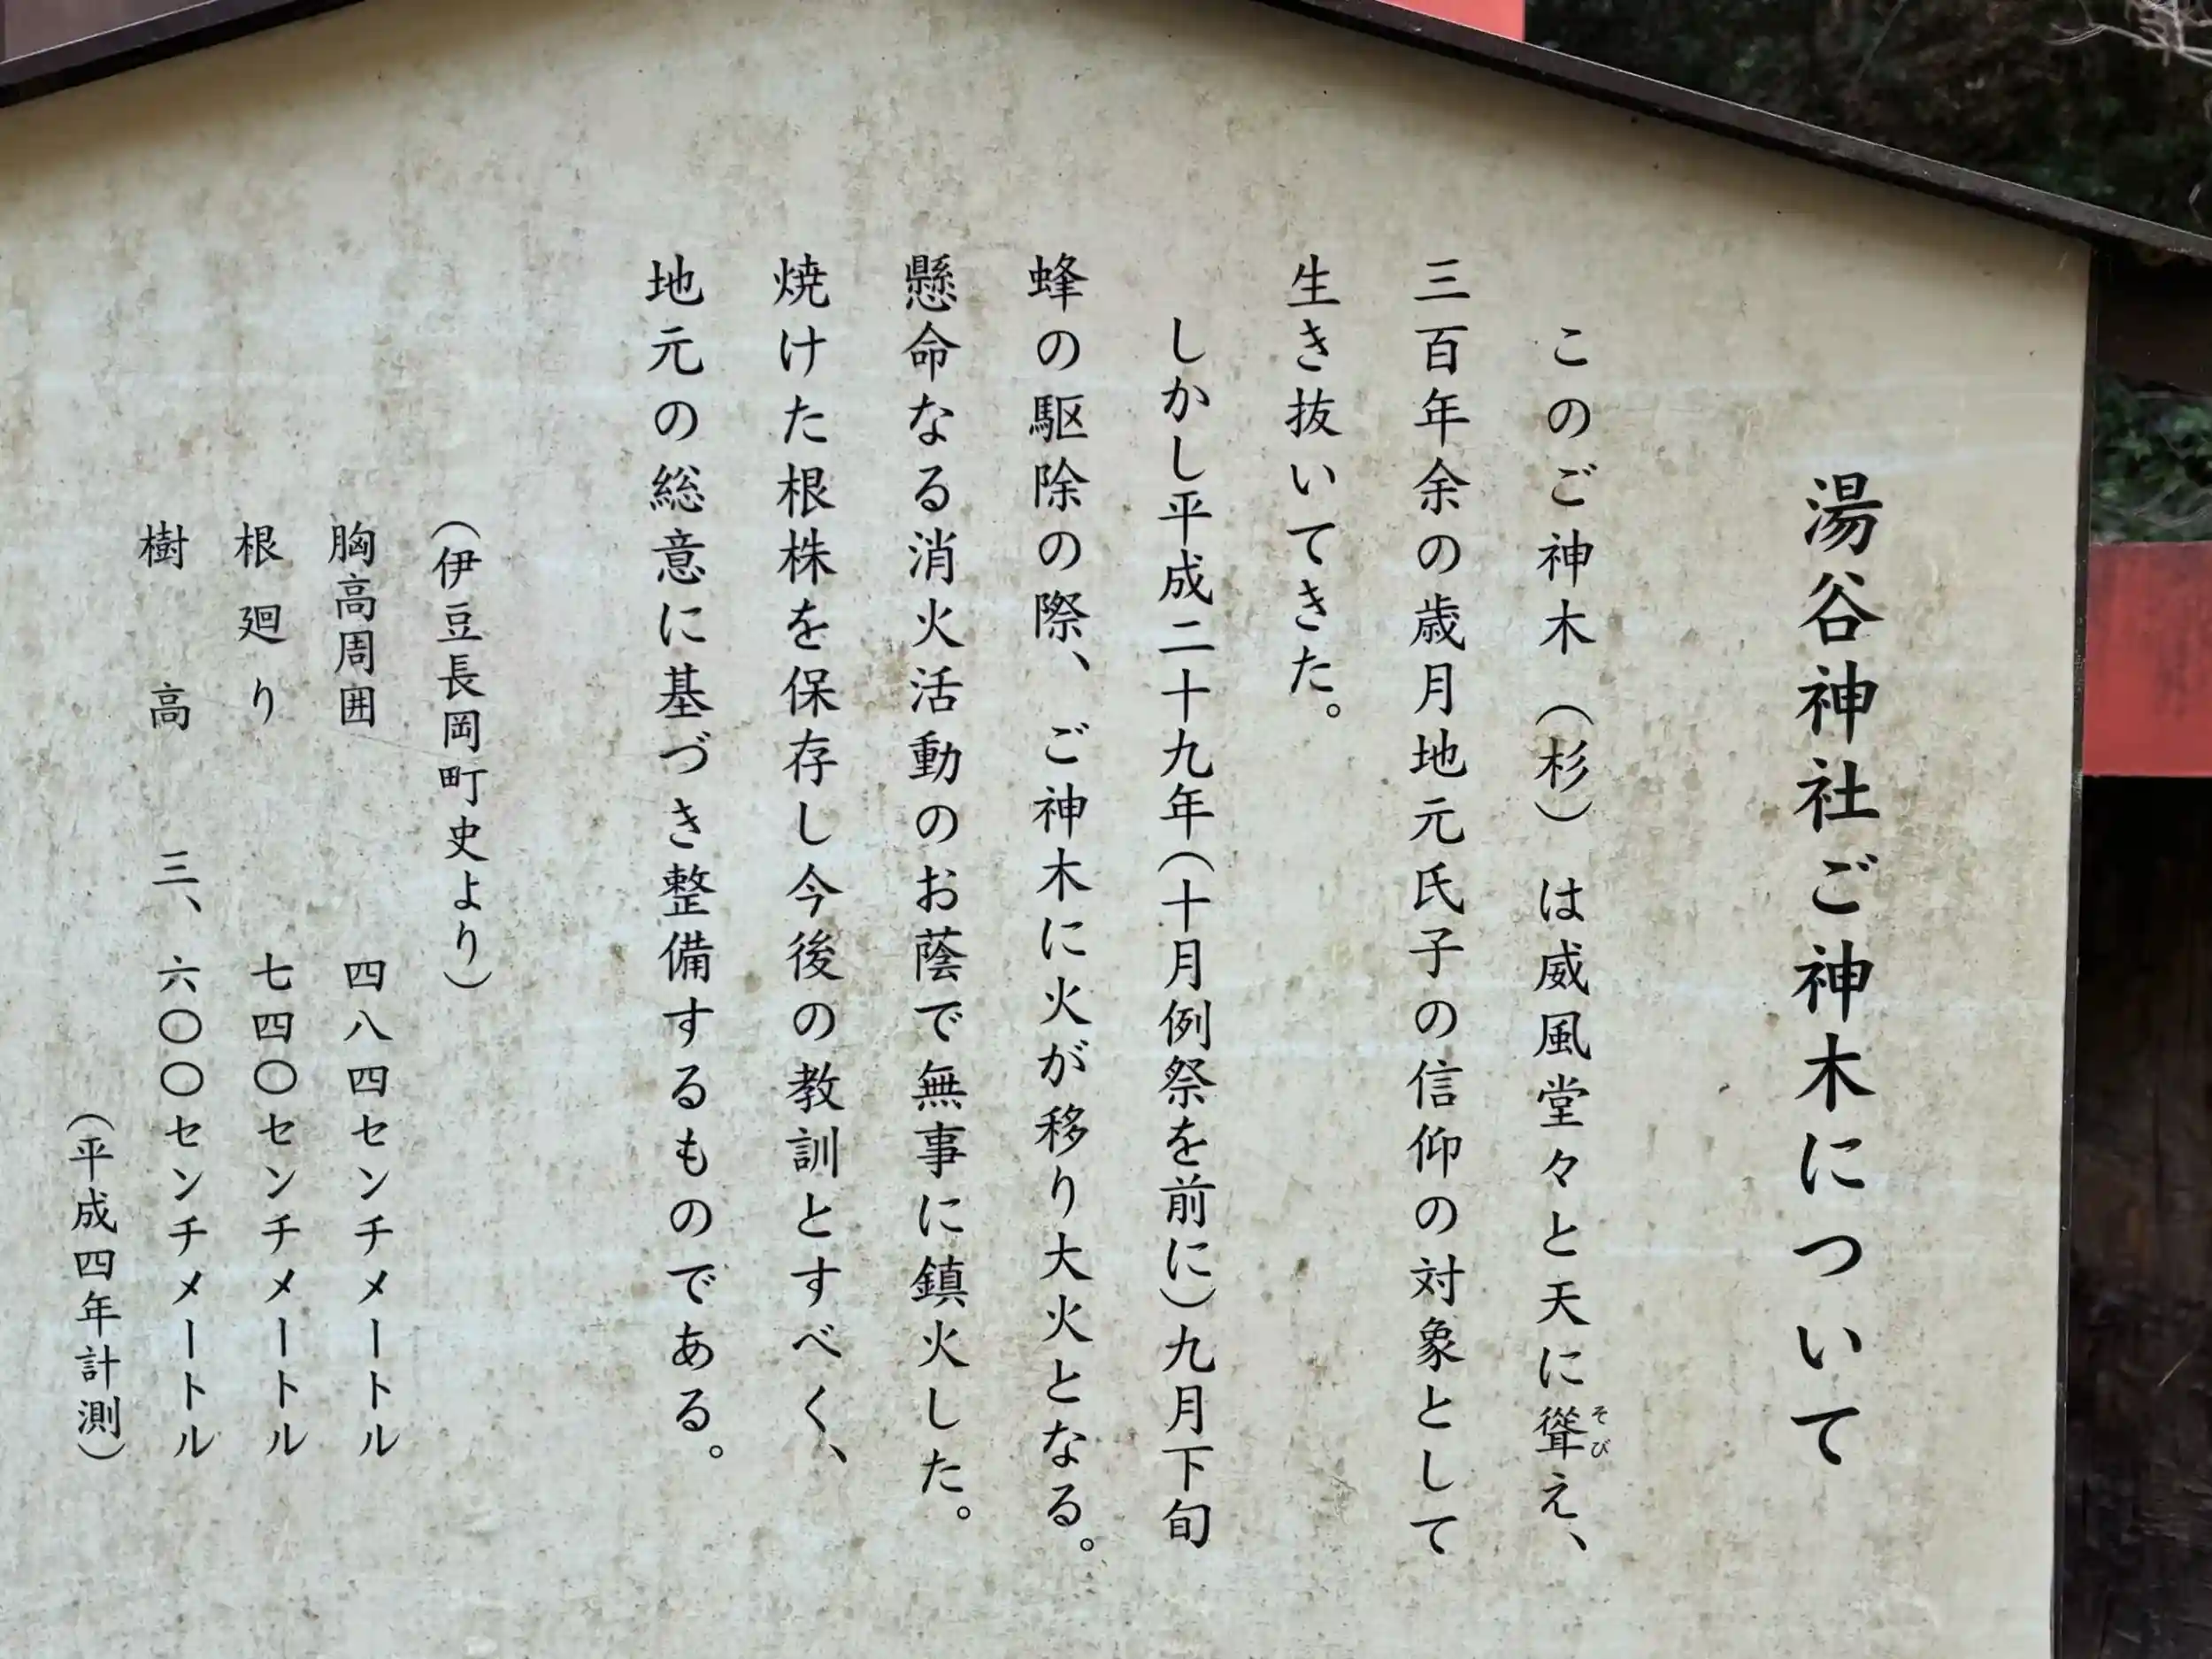 湯谷神社ご神木について
このご神木（杉）は威風堂々と天に聳え、
そび
三百年余の歳月地元氏子の信仰の対象として
生き抜いてきた。
しかし平成二十九年（十月例祭を前に）九月下旬
蜂の駆除の際、ご神木に火が移り大火となる。
懸命なる消火活動のお蔭で無事に鎮火した。
焼けた根株を保存し今後の教訓とすべく、
地元の総意に基づき整備するものである。
（伊豆長岡町史より）
胸高周囲　四八四センチメートル
根廻り　七四〇センチメートル
樹高　三、六〇〇センチメートル
（平成四年計測）